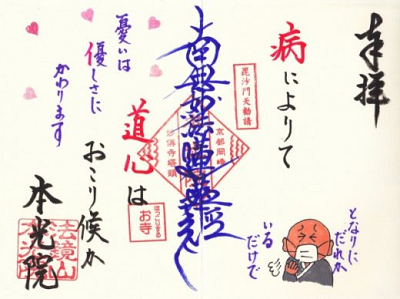 奉拝
病によりて
毘沙門天勧請
南無妙法蓮華経
京都岡崎
道心は
ほっこりする
お寺
おこり候か
本光院
法鏡山
憂いは
優しさに
かわります
となりに
だれか
いる
だけで